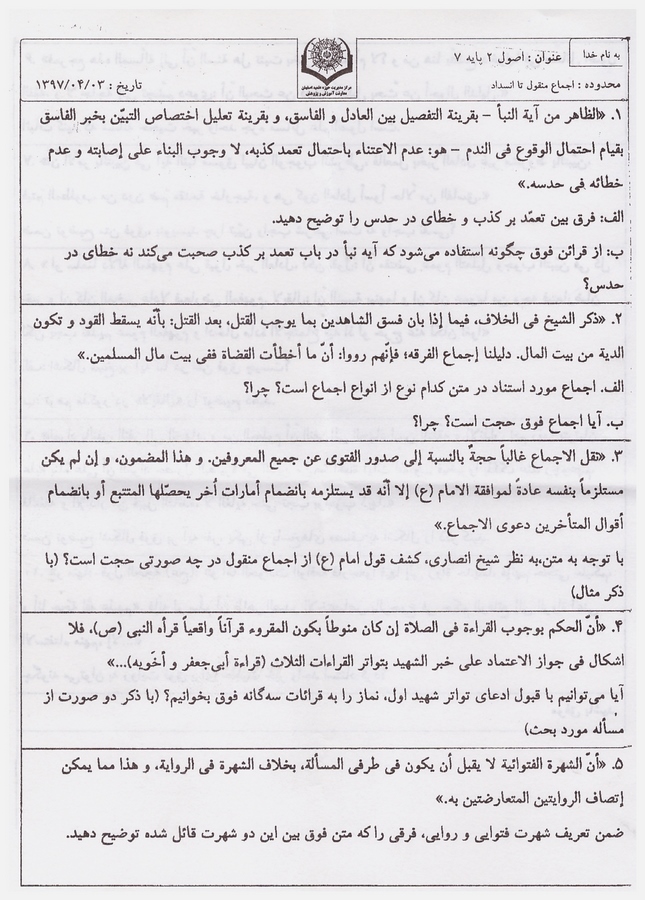 به نام خدا
عنوان : اصول ۲ پایه ۷
مرکز مدیریت حوزه علمیه اصفهان
معاونت آموزش و پژوهش
محدوده : اجماع منقول تا انسداد
تاریخ : ۱۳۹۷/۰۴/۰۳
۱. «الظاهر من آیة النبأ – بقرینة التفصیل بین العادل و الفاسق، و بقرینة تعلیل اختصاص التبیّن بخبر الفاسق
بقیام احتمال الوقوع فی الندم – هو: عدم الاعتناء باحتمال تعمد کذبه، لا وجوب البناء علی إصابته و عدم
خطائه فی حدسه.»
الف: فرق بین تعمّد بر کذب و خطای در حدس را توضیح دهید.
ب: از قرائن فوق چگونه استفاده می‌شود که آیه نبأ در باب تعمد بر کذب صحبت می‌کند نه خطای در
حدس؟
۲. «ذکر الشیخ فی الخلاف، فیما إذا بان فسق الشاهدین بما یوجب القتل، بعد القتل: بأنّه یسقط القود و تکون
الدیة من بیت المال. دلیلنا إجماع الفرقه؛ فإنّهم رووا: أنّ ما أخطأت القضاة ففی بیت مال المسلمین.»
الف. اجماع مورد استناد در متن کدام نوع از انواع اجماع است؟ چرا؟
ب. آیا اجماع فوق حجت است؟ چرا؟
۳. «نقل الاجماع غالباً حجةٌ بالنسبة إلی صدور الفتوی عن جمیع المعروفین. و هذا المضمون، و إن لم یکن
مستلزماً بنفسه عادةً لموافقة الامام (ع) إلا أنّه قد یستلزمه بانضمام أمارات أُخر یحصّلها المتتبع أو بانضمام
أقوال المتأخرین دعوی الاجماع.»
با توجه به متن،به نظر شیخ انصاری، کشف قول امام (ع) از اجماع منقول در چه صورتی حجت است؟ (با
ذکر مثال)
۴. «أنّ الحکم بوجوب القراءة فی الصلاة إن کان منوطاً بکون المقروء قرآناً واقعیاً قرأه النبی (ص)، فلا
اشکال فی جواز الاعتماد علی خبر الشهید بتواتر القراءات الثلاث (قراءة أبی‌جعفر و أخَویه)...»
آیا می‌توانیم با قبول ادعای تواتر شهید اول، نماز را به قرائات سه‌گانه فوق بخوانیم؟ (با ذکر دو صورت از
مسأله مورد بحث)
۵. «أنّ الشهرة الفتوائیة لا یقبل أن یکون فی طرفی المسألة، بخلاف الشهرة فی الروایة، و هذا مما یمکن
إتصاف الروایتین المتعارضتین به.»
ضمن تعریف شهرت فتوایی و روایی، فرقی را که متن فوق بین این دو شهرت قائل شده توضیح دهید.